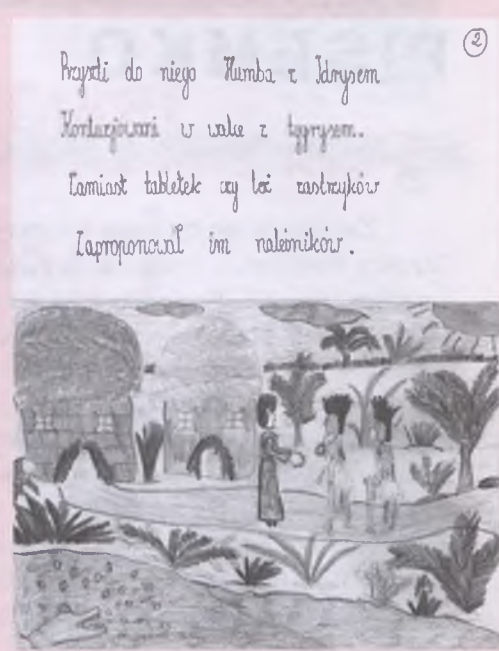 2
Przyszli do niego Kumba z Idrysem
Kontuzjowani w walce z tygrysem.
Zamiast tabletek czy też zastrzyków
Zaproponował im naleśników.